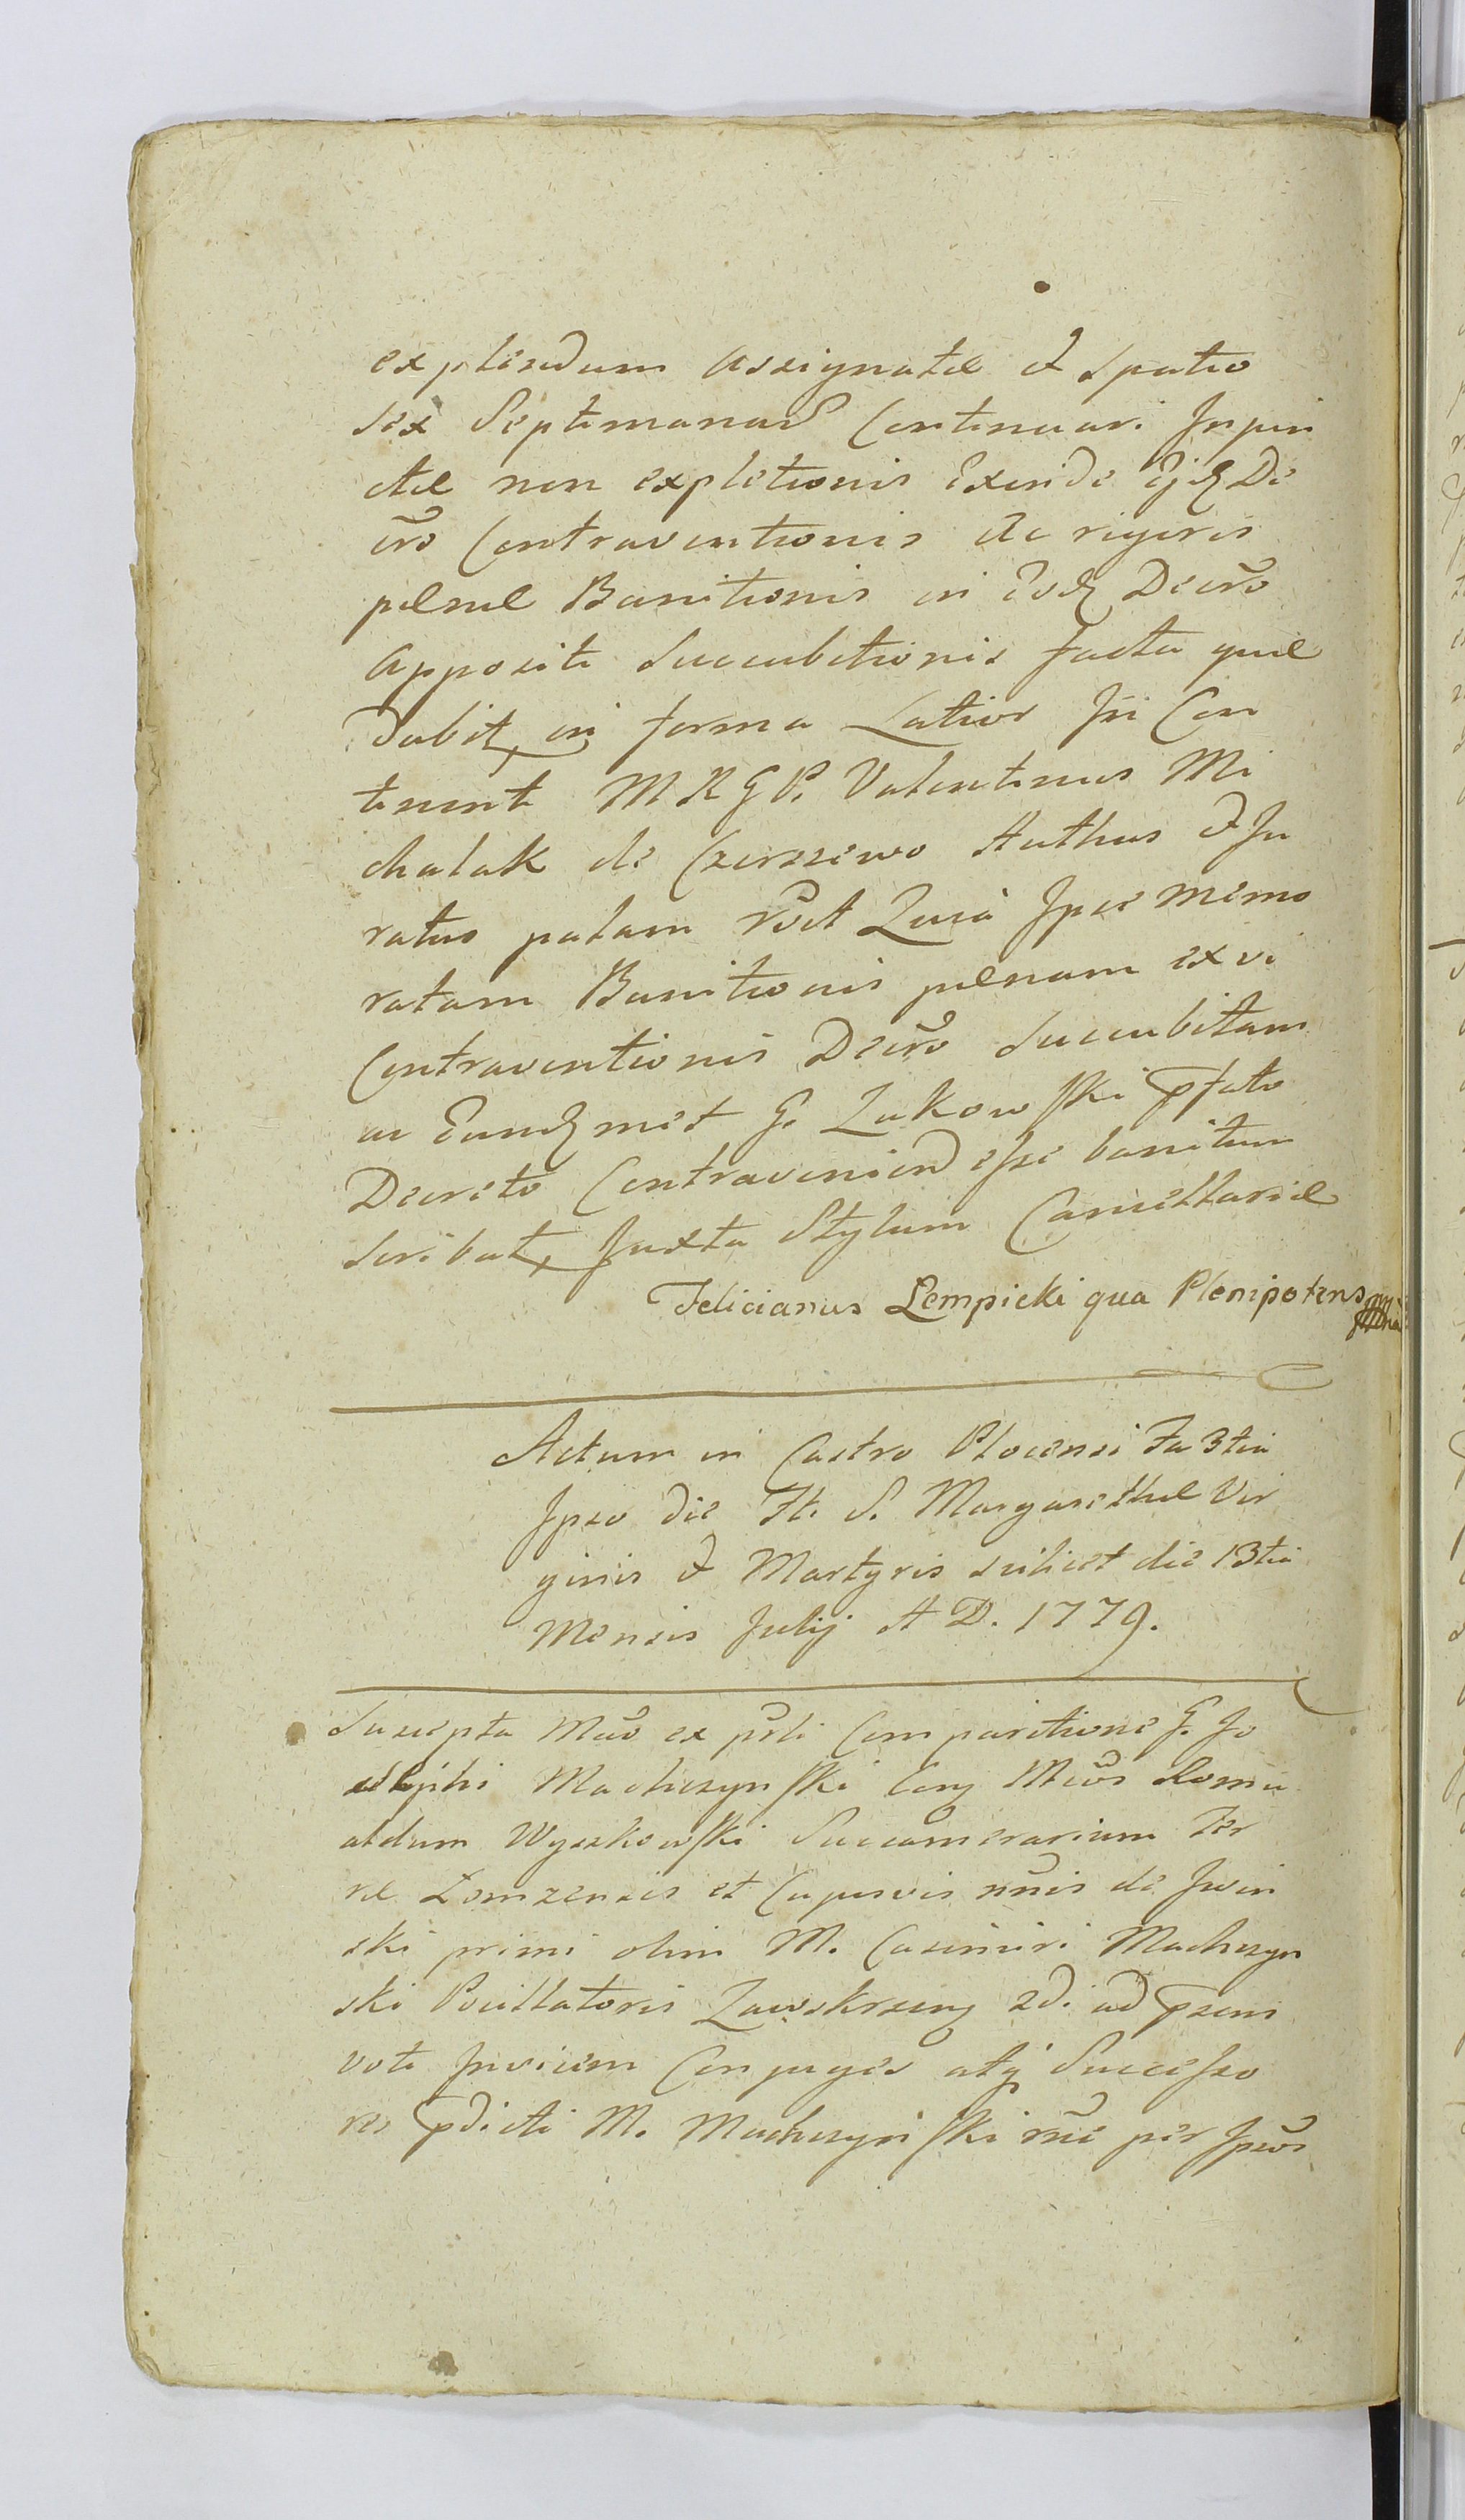 explendum assignatæ et Spatio
sex Septimanarū Continuari In pun
ctæ non expletionis Exinde Ejuſd De
crō Contraventionis Ac rigoris
pænæ Banitionis in Eod Decrō
appositi Succubitionis facta quæ
dabit in forma Latior In Con
tinenti M R G P. Valentinus Mi
chalak de Czerszewo Authus et Ju
ratus palam rēct Quia Ipse memo
ratam Banitionis pænam ex vi
Contraventionis Decrō Succubitam
ac Eundmet G. Zukowſki pſato
Decreto Contraveniend eſse banitum
Scribat Juxta Stylum Cancellariæ
Felicianus Lempicki qua Plenipotens
Actum in Castro Plocensi Fa 3tia
Ipso die Ft. S. Margarethæ Vir
ginis et Martyris scilicet die 13tia
Mensis Julij A D. 1779.
Suscepta Mūo ex pr̄li Comparitione G. Jo
sephi Machczynſki Corg Mcōs Romu
aldum Wyszkowſki Succamerarium Ter
ræ Łomzensis et Cujusvis nn̄is de Iwin
ski primi olim M. Casimiri Machczyn
ski Pocillatoris Zawskrzeng 2di ad pſens
voti Invicem Conjuges atq Succeſso
res pdicti M. Machczynſki rn̄e per Ipsōs